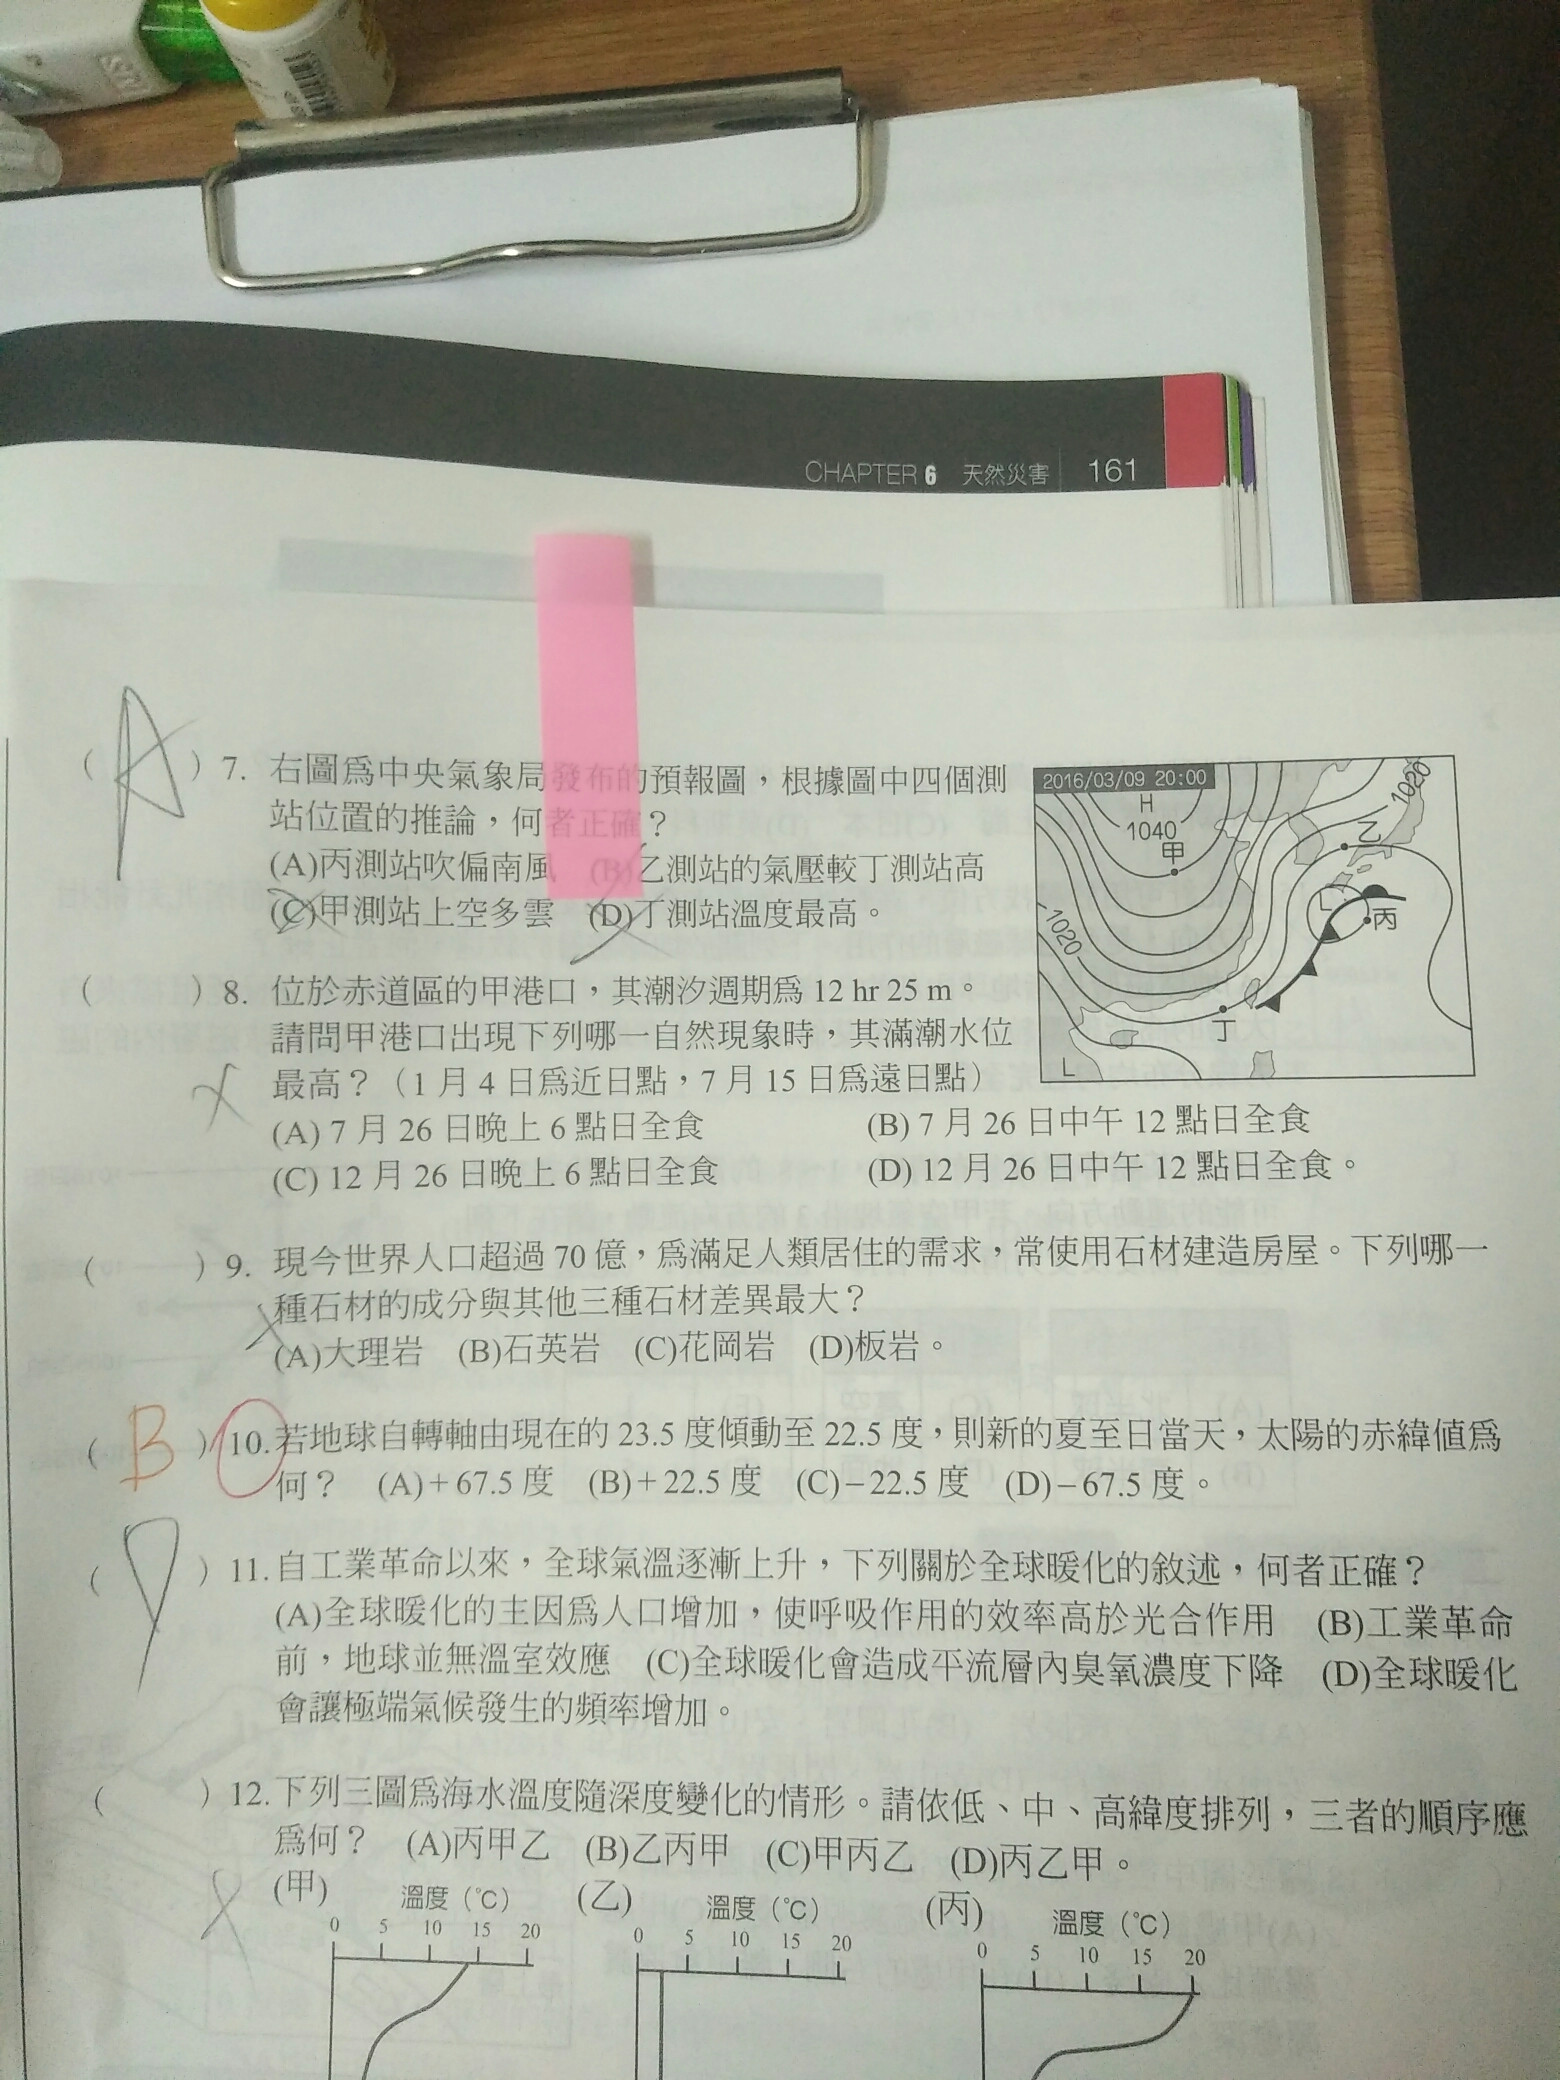 CHAPTER 6 天然災害 161
( A ) 7. 右圖為中央氣象局發布的預報圖,根據圖中四個測
站位置的推論,何者正確?
(A)丙測站吹偏南風 (B)乙測站的氣壓較丁測站高
(C)甲測站上空多雲 (D)丁測站溫度最高。
2016/03/09 20:00
H
1040
甲
1020
乙
L
丙
1020
丁
L
( ) 8. 位於赤道區的甲港口,其潮汐週期為 12 hr 25 m。
請問甲港口出現下列哪一自然現象時,其滿潮水位
最高?(1 月 4 日為近日點,7 月 15 日為遠日點)
(A) 7 月 26 日晚上 6 點日全食 (B) 7 月 26 日中午 12 點日全食
(C) 12 月 26 日晚上 6 點日全食 (D) 12 月 26 日中午 12 點日全食。
( ) 9. 現今世界人口超過 70 億,為滿足人類居住的需求,常使用石材建造房屋。下列哪一
種石材的成分與其他三種石材差異最大?
(A)大理岩 (B)石英岩 (C)花岡岩 (D)板岩。
( B ) 10. 若地球自轉軸由現在的 23.5 度傾動至 22.5 度,則新的夏至日當天,太陽的赤緯值為
何? (A)+67.5 度 (B)+22.5 度 (C)−22.5 度 (D)−67.5 度。
( ) 11. 自工業革命以來,全球氣溫逐漸上升,下列關於全球暖化的敘述,何者正確?
(A)全球暖化的主因為人口增加,使呼吸作用的效率高於光合作用 (B)工業革命
前,地球並無溫室效應 (C)全球暖化會造成平流層內臭氧濃度下降 (D)全球暖化
會讓極端氣候發生的頻率增加。
( ) 12. 下列三圖為海水溫度隨深度變化的情形。請依低、中、高緯度排列,三者的順序應
為何? (A)丙甲乙 (B)乙丙甲 (C)甲丙乙 (D)丙乙甲。
(甲) 溫度(℃) (乙) 溫度(℃) (丙) 溫度(℃)
0 5 10 15 20 0 5 10 15 20 0 5 10 15 20